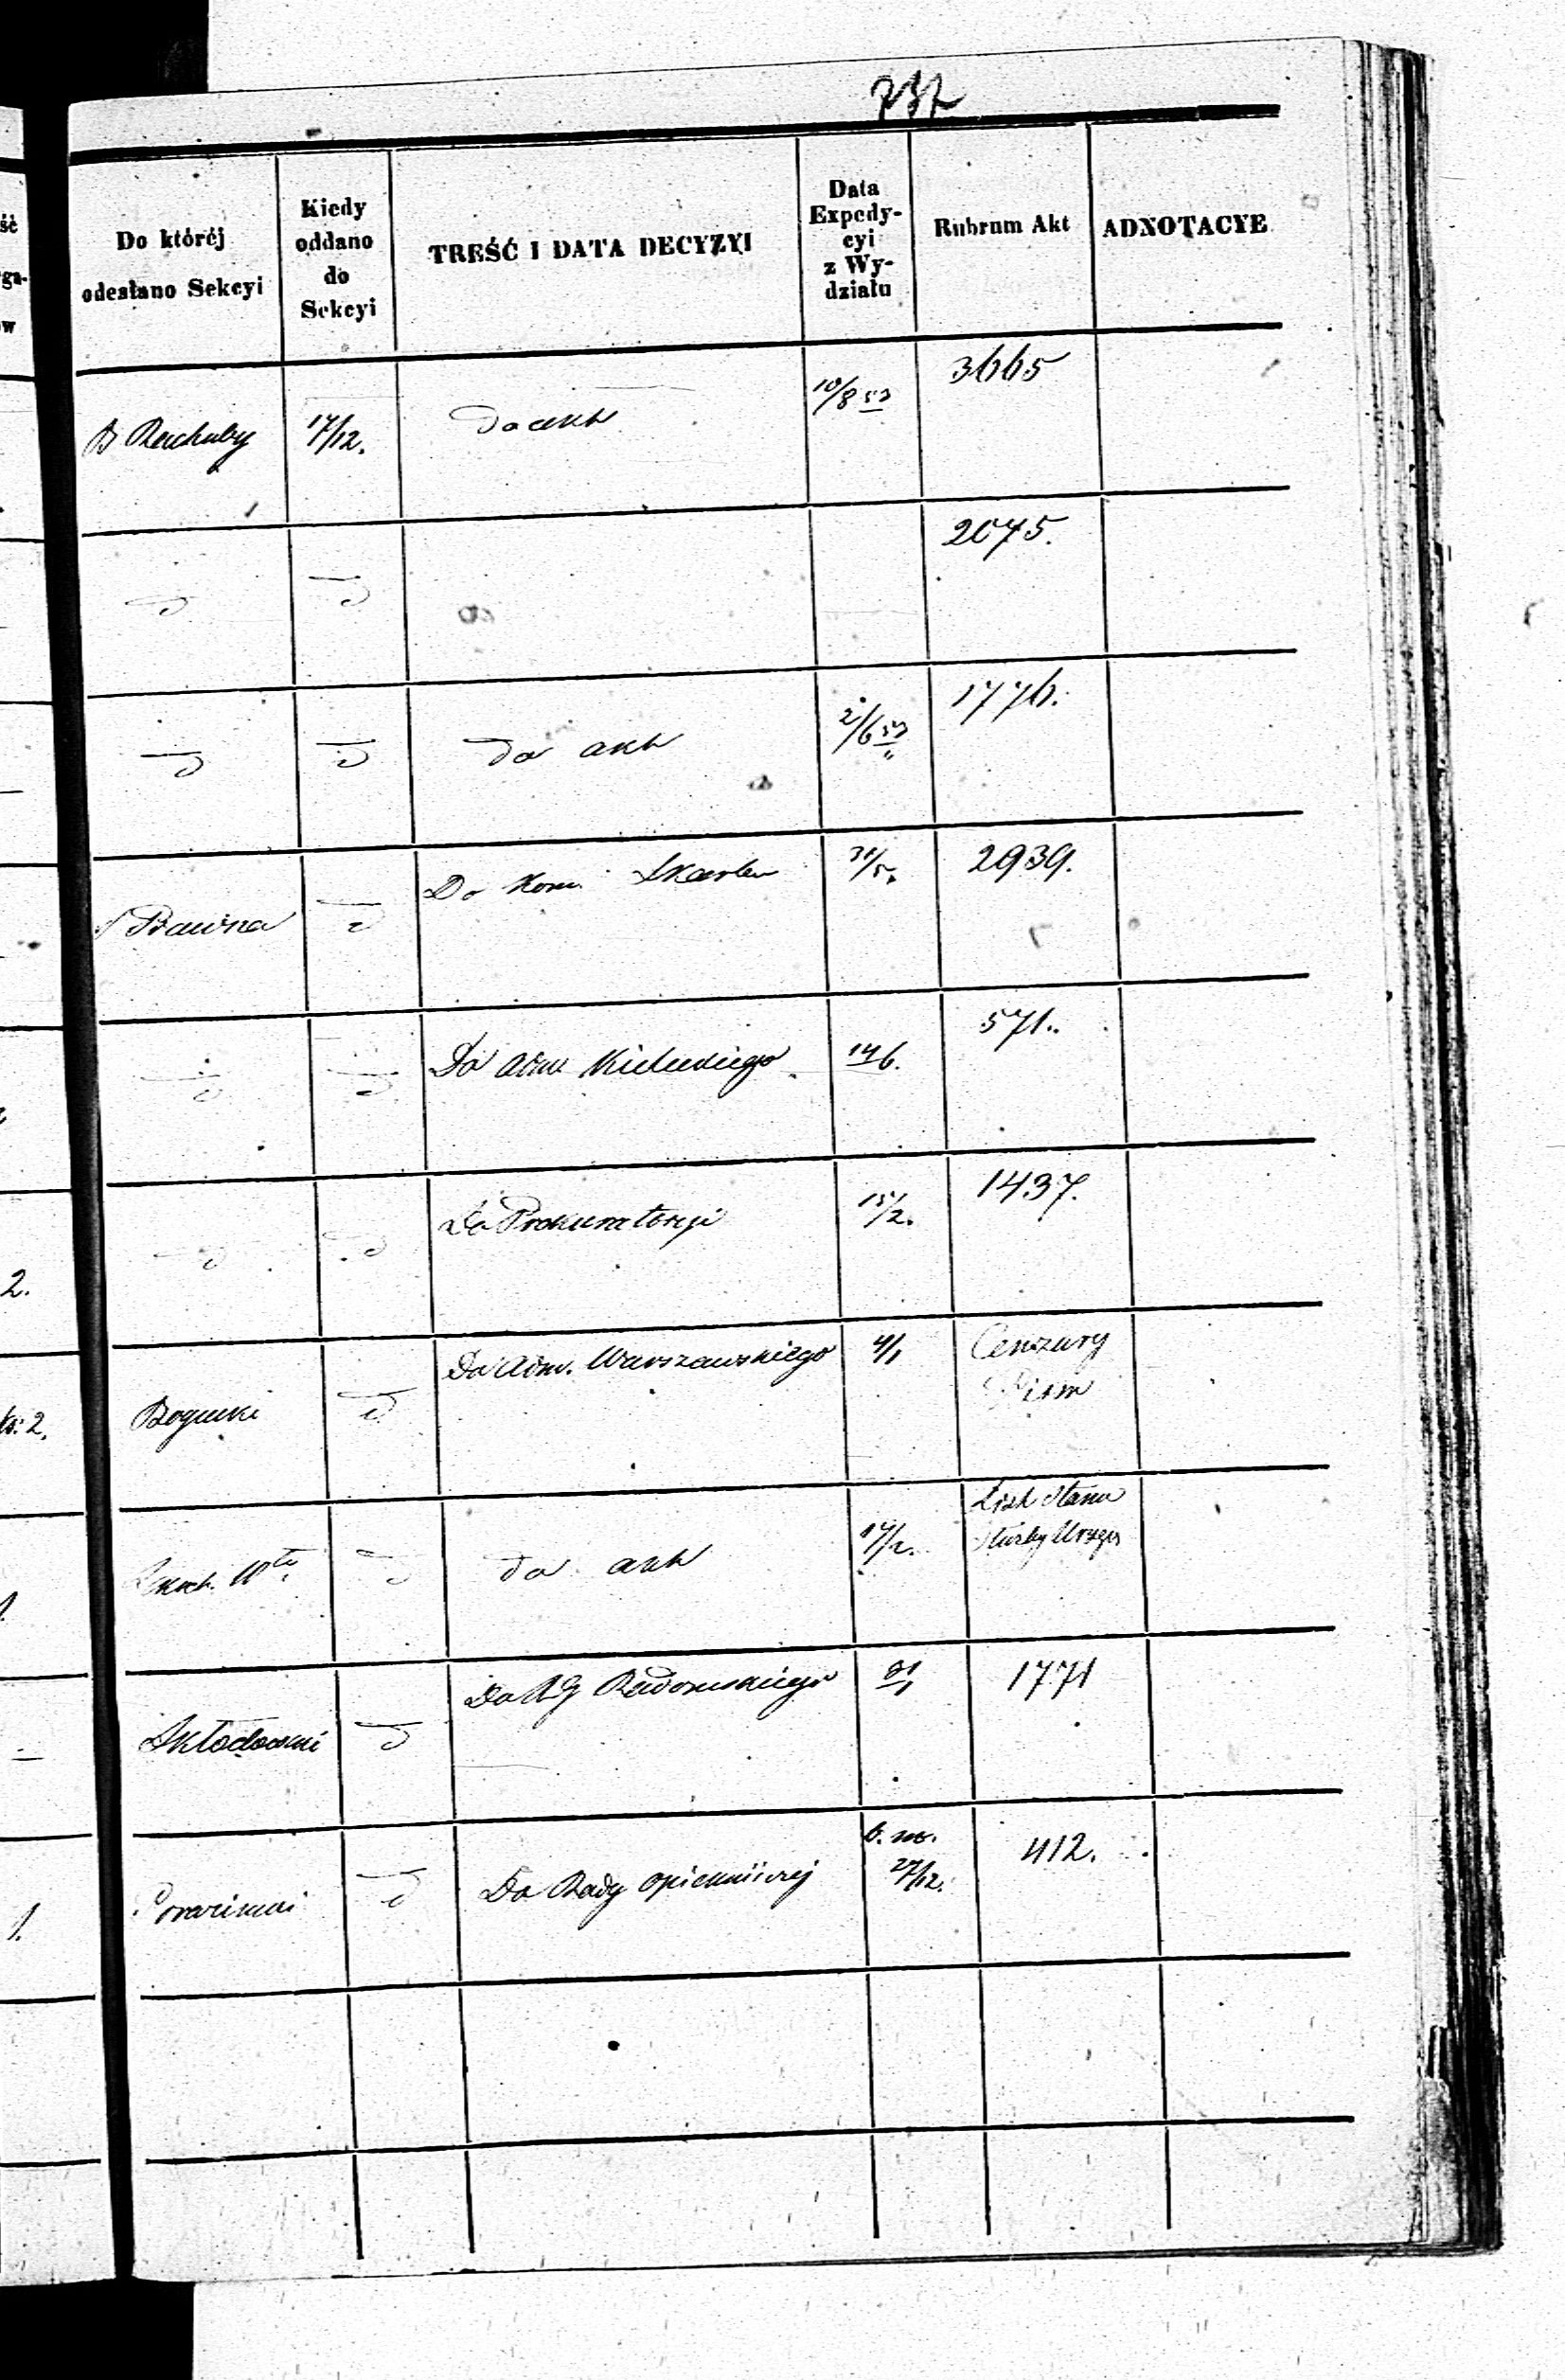 737
Do któréj
odesłano Sekcyi
Kiedy
oddano
do
Sekcyi
TREŚĆ I DATA DECYZYI
Data
Expedy-
cyi
z Wy-
działu
Rubrum Akt
ADNOTACYE
B Rachuby
17/12.
do akt
10/8 53
3665
d
d
2075.
d
d
do akt
2/6 53
1776.
S Prawna
d
Do Kom. Skarbu
31/5.
2939.
d
d
Do Adm. Kieleckiego
14/6.
571.
d
d
Do Prokuratoryi
15/2.
1437.
Bogucki
d
Do Adm. Warszawskiego
4/1
Cenzury
Pism
d
do akt
17/2.
List Stanu
Służby Urzęd
Skłodowski
d
Do RG Radomskiego
1771
d
Do Rady opiekuńczej
27/12.
412.